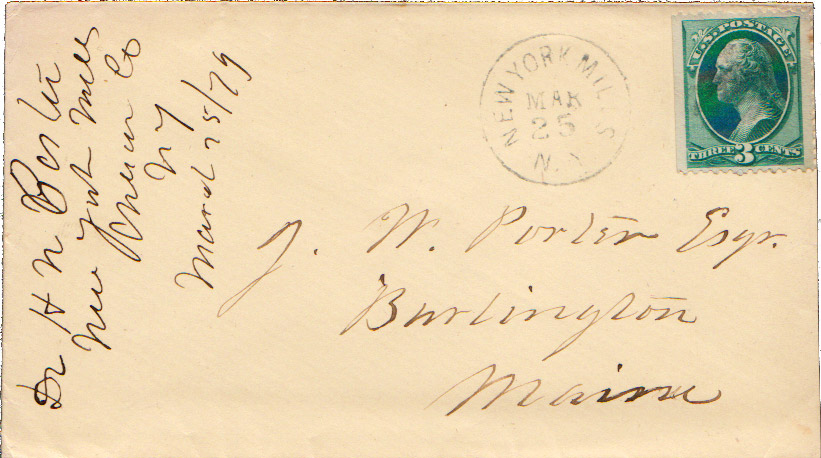 Dr H N Porter
New York Mills
Oneida Co
N Y
March 25/79
NEW YORK MILLS
MAR
25
N.Y.
U.S. POSTAGE
THREE 3 CENTS
J. W. Porter Esqr.
Burlington
Maine